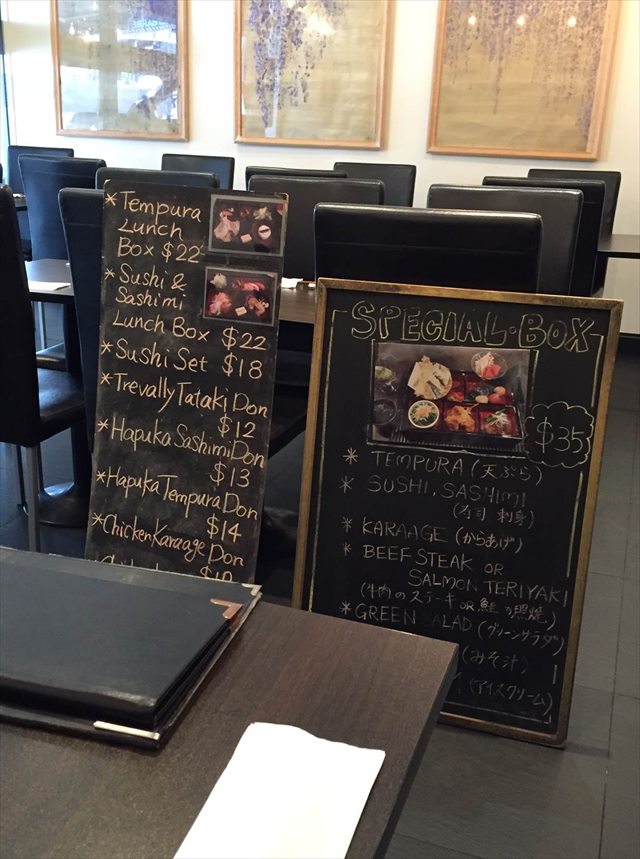 *Tempura
Lunch
Box $22
*Sushi &
Sashimi
Lunch Box $22
*Sushi Set $18
*Trevally Tataki Don
$12
*Hapuka Sashimi Don
$13
*Hapuka Tempura Don
$14
*Chicken Karaage Don
SPECIAL·BOX
$35
* TEMPURA (天ぷら)
* SUSHI, SASHIMI
(寿司 刺身)
* KARAAGE (からあげ)
* BEEF STEAK OR
SALMON TERIYAKI
(牛肉のステーキ OR 鮭の照焼)
*GREEN SALAD (グリーンサラダ)
(みそ汁)
(アイスクリーム)